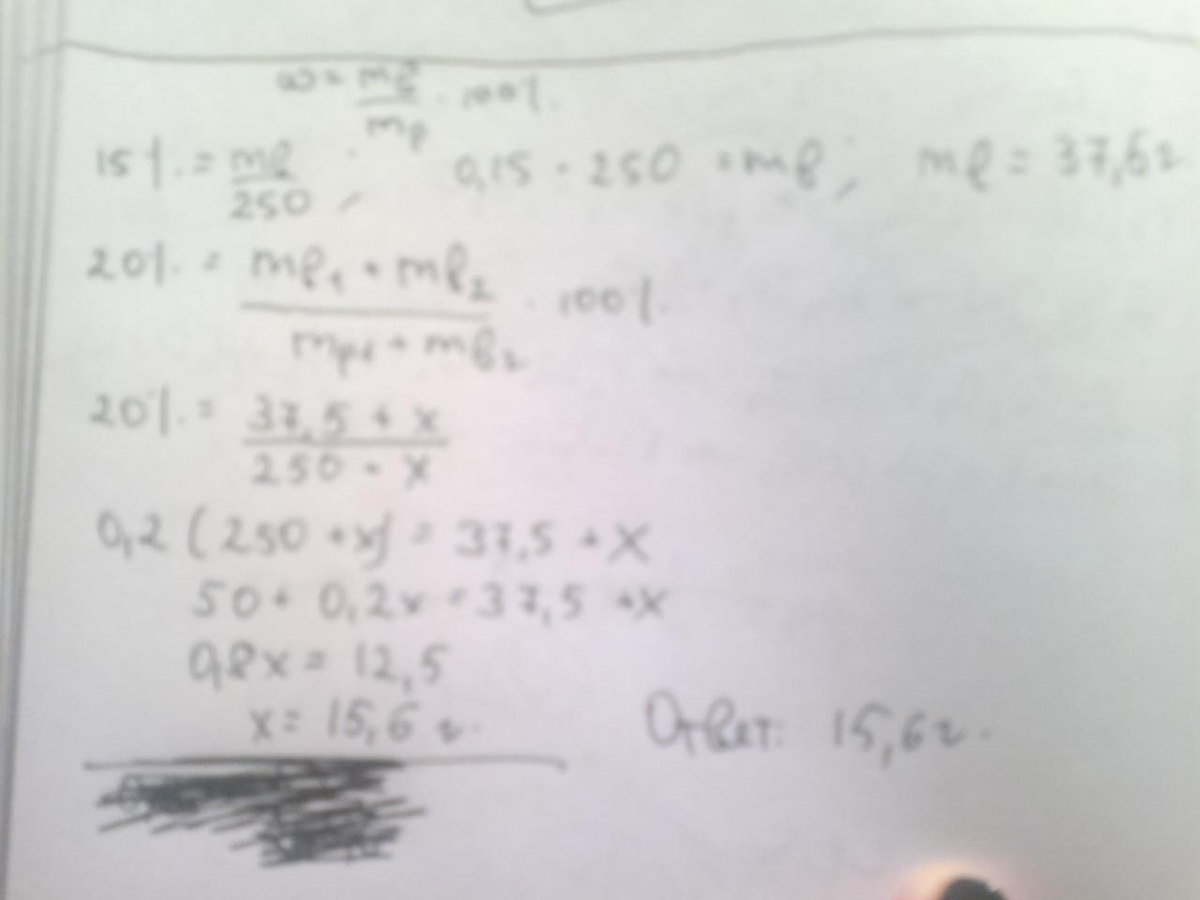 ω = mв/mр · 100%.
15%. = mв/250 ; 0,15 · 250 = mв; mв = 37,6г.
20%. = mв₁ + mв₂ / mр₁ + mв₂ · 100%.
20%. = 37,5 + x / 250 + x
0,2 (250 + x) = 37,5 + x
50 + 0,2x = 37,5 + x
0,8x = 12,5
x = 15,6 г. Ответ: 15,6г.